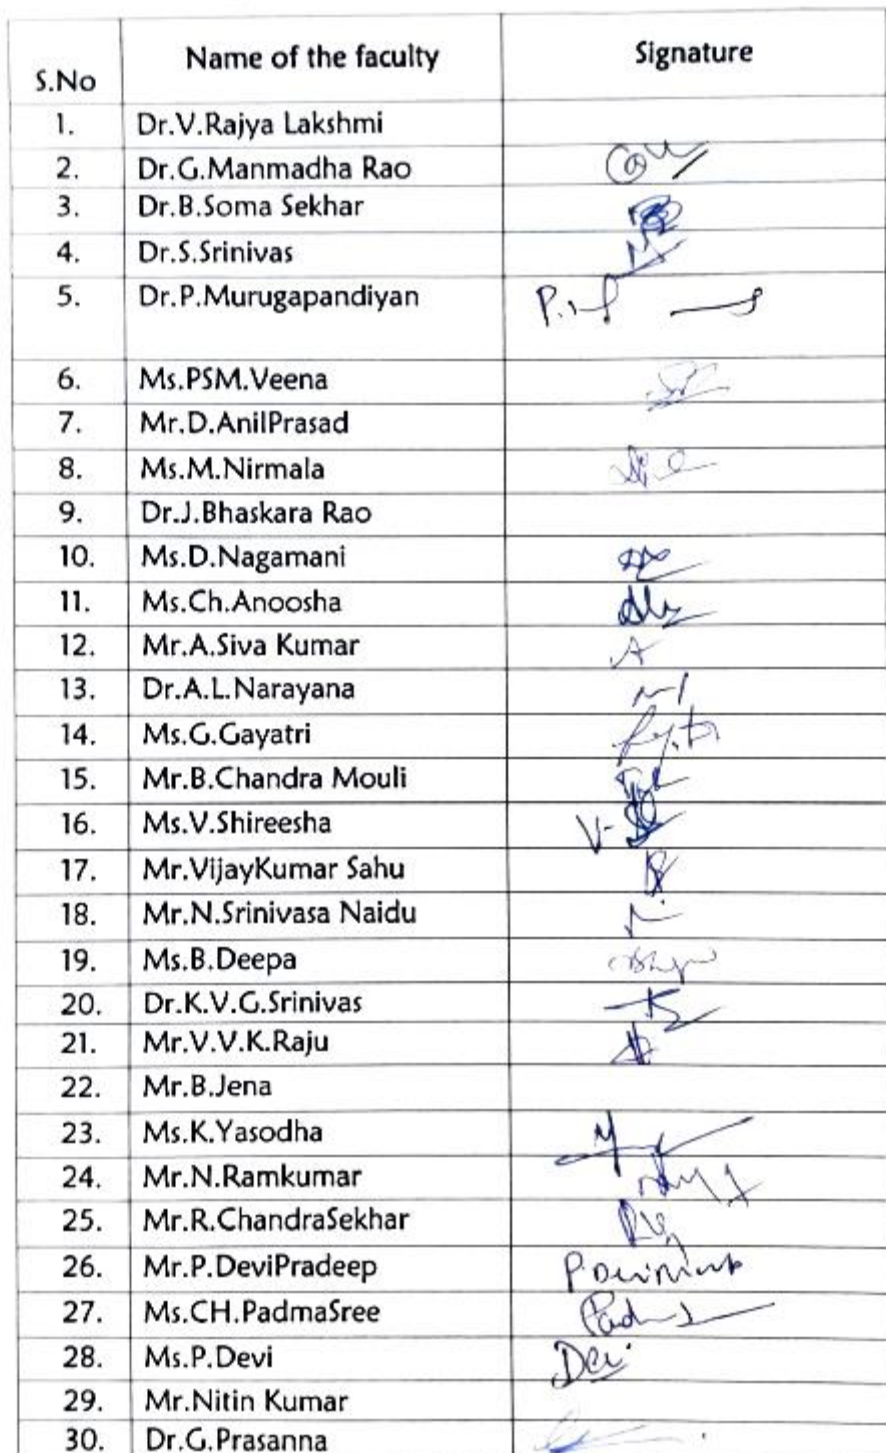 S.No Name of the faculty Signature
1. Dr.V.Rajya Lakshmi
2. Dr.G.Manmadha Rao
3. Dr.B.Soma Sekhar
4. Dr.S.Srinivas
5. Dr.P.Murugapandiyan
6. Ms.PSM.Veena
7. Mr.D.AnilPrasad
8. Ms.M.Nirmala
9. Dr.J.Bhaskara Rao
10. Ms.D.Nagamani
11. Ms.Ch.Anoosha
12. Mr.A.Siva Kumar
13. Dr.A.L.Narayana
14. Ms.G.Gayatri
15. Mr.B.Chandra Mouli
16. Ms.V.Shireesha
17. Mr.VijayKumar Sahu
18. Mr.N.Srinivasa Naidu
19. Ms.B.Deepa
20. Dr.K.V.G.Srinivas
21. Mr.V.V.K.Raju
22. Mr.B.Jena
23. Ms.K.Yasodha
24. Mr.N.Ramkumar
25. Mr.R.ChandraSekhar
26. Mr.P.DeviPradeep
27. Ms.CH.PadmaSree
28. Ms.P.Devi Devi
29. Mr.Nitin Kumar
30. Dr.G.Prasanna